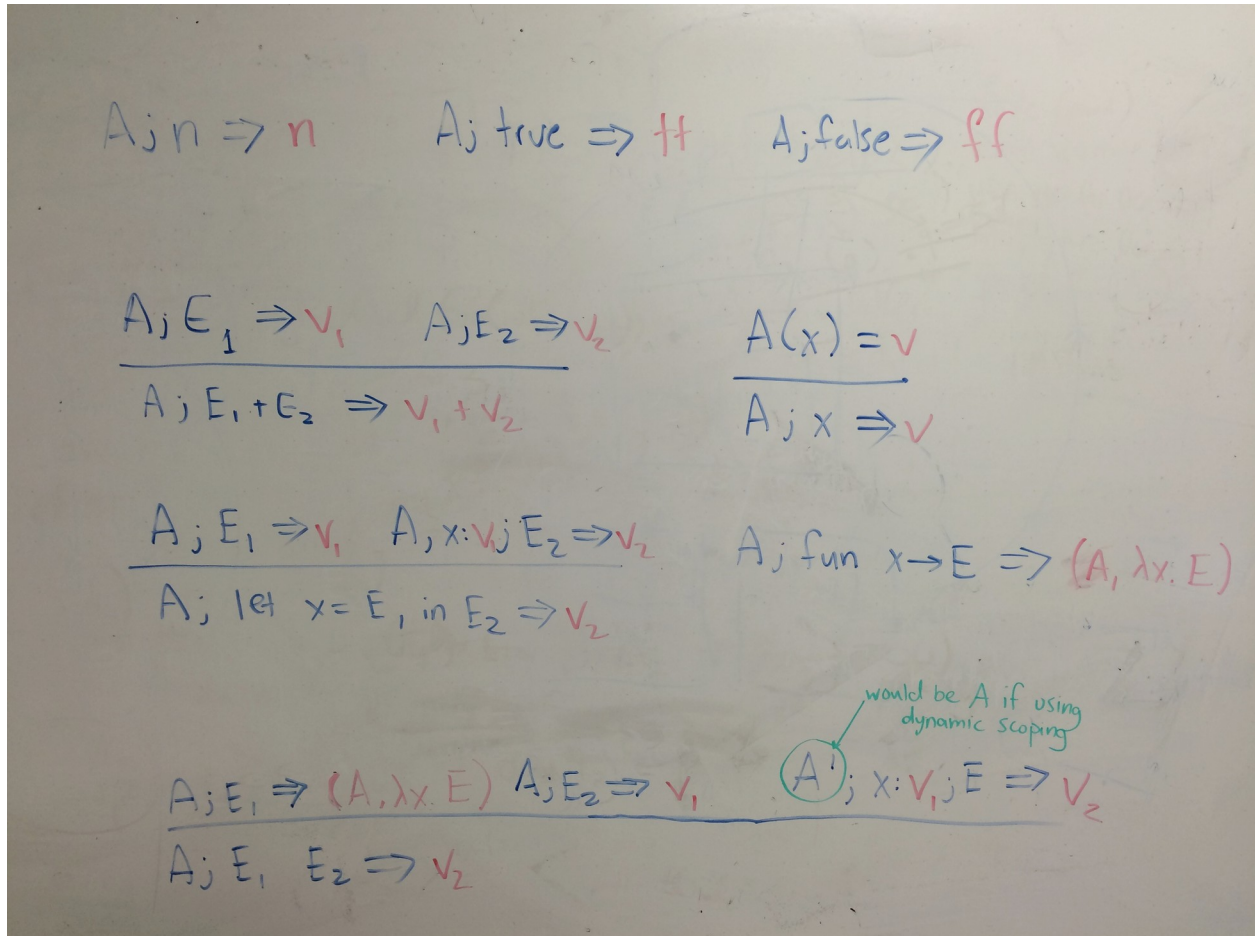 A; n ⇒ n A; true ⇒ tt A; false ⇒ ff
A; E₁ ⇒ v₁ A; E₂ ⇒ v₂ A(x) = v
A; E₁ + E₂ ⇒ v₁ + v₂ A; x ⇒ v
A; E₁ ⇒ v₁ A, x:v₁; E₂ ⇒ v₂ A; fun x → E ⇒ (A, λx. E)
A; let x = E₁ in E₂ ⇒ v₂
would be A if using
dynamic scoping
A; E₁ ⇒ (A, λx. E) A; E₂ ⇒ v₁ A'; x:v₁; E ⇒ v₂
A; E₁ E₂ ⇒ v₂